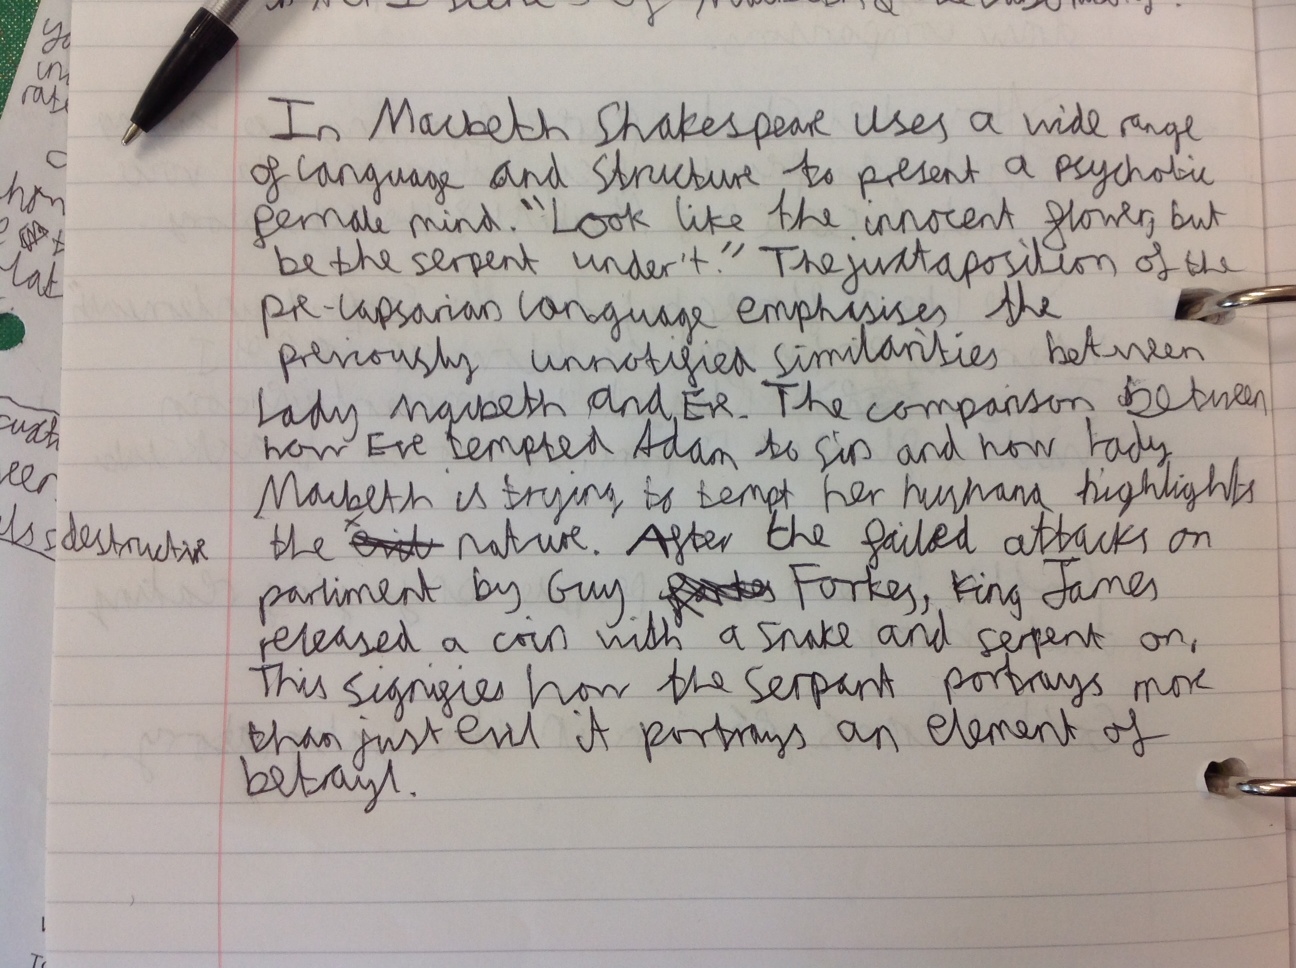 In Macbeth Shakespeare uses a wide range
of language and structure to present a psychotic
female mind. "Look like the innocent flower, but
be the serpent under't." The juxtaposition of the
pre-lapsarian language emphasises the
previously unnotified similarities between
Lady Macbeth and Eve. The comparison between
how Eve tempted Adam to sin and how Lady
Macbeth is trying to tempt her husband highlights
destructive the evil nature. After the failed attacks on
parliment by Guy Forkes, King James
released a coin with a snake and serpent on.
This signifies how the serpant portrays more
than just evil it portrays an element of
betrayl.